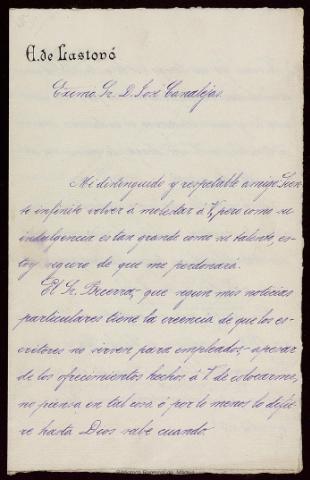 E. de Lustonó
Excmo. Sr. D. José Canalejas.
Mi distinguido y respetable amigo: Sien-
to infinito volver á molestar á V., pero como su
indulgencia es tan grande como su talento, es-
toy seguro de que me perdonará.
El Sr. Becerra, que segun mis noticias
particulares tiene la creencia de que los es-
critores no sirven para empleados, apesar
de los ofrecimientos hechos á V. de colocarme,
no piensa en tal cosa ó por lo menos lo difie-
re hasta Dios sabe cuando.